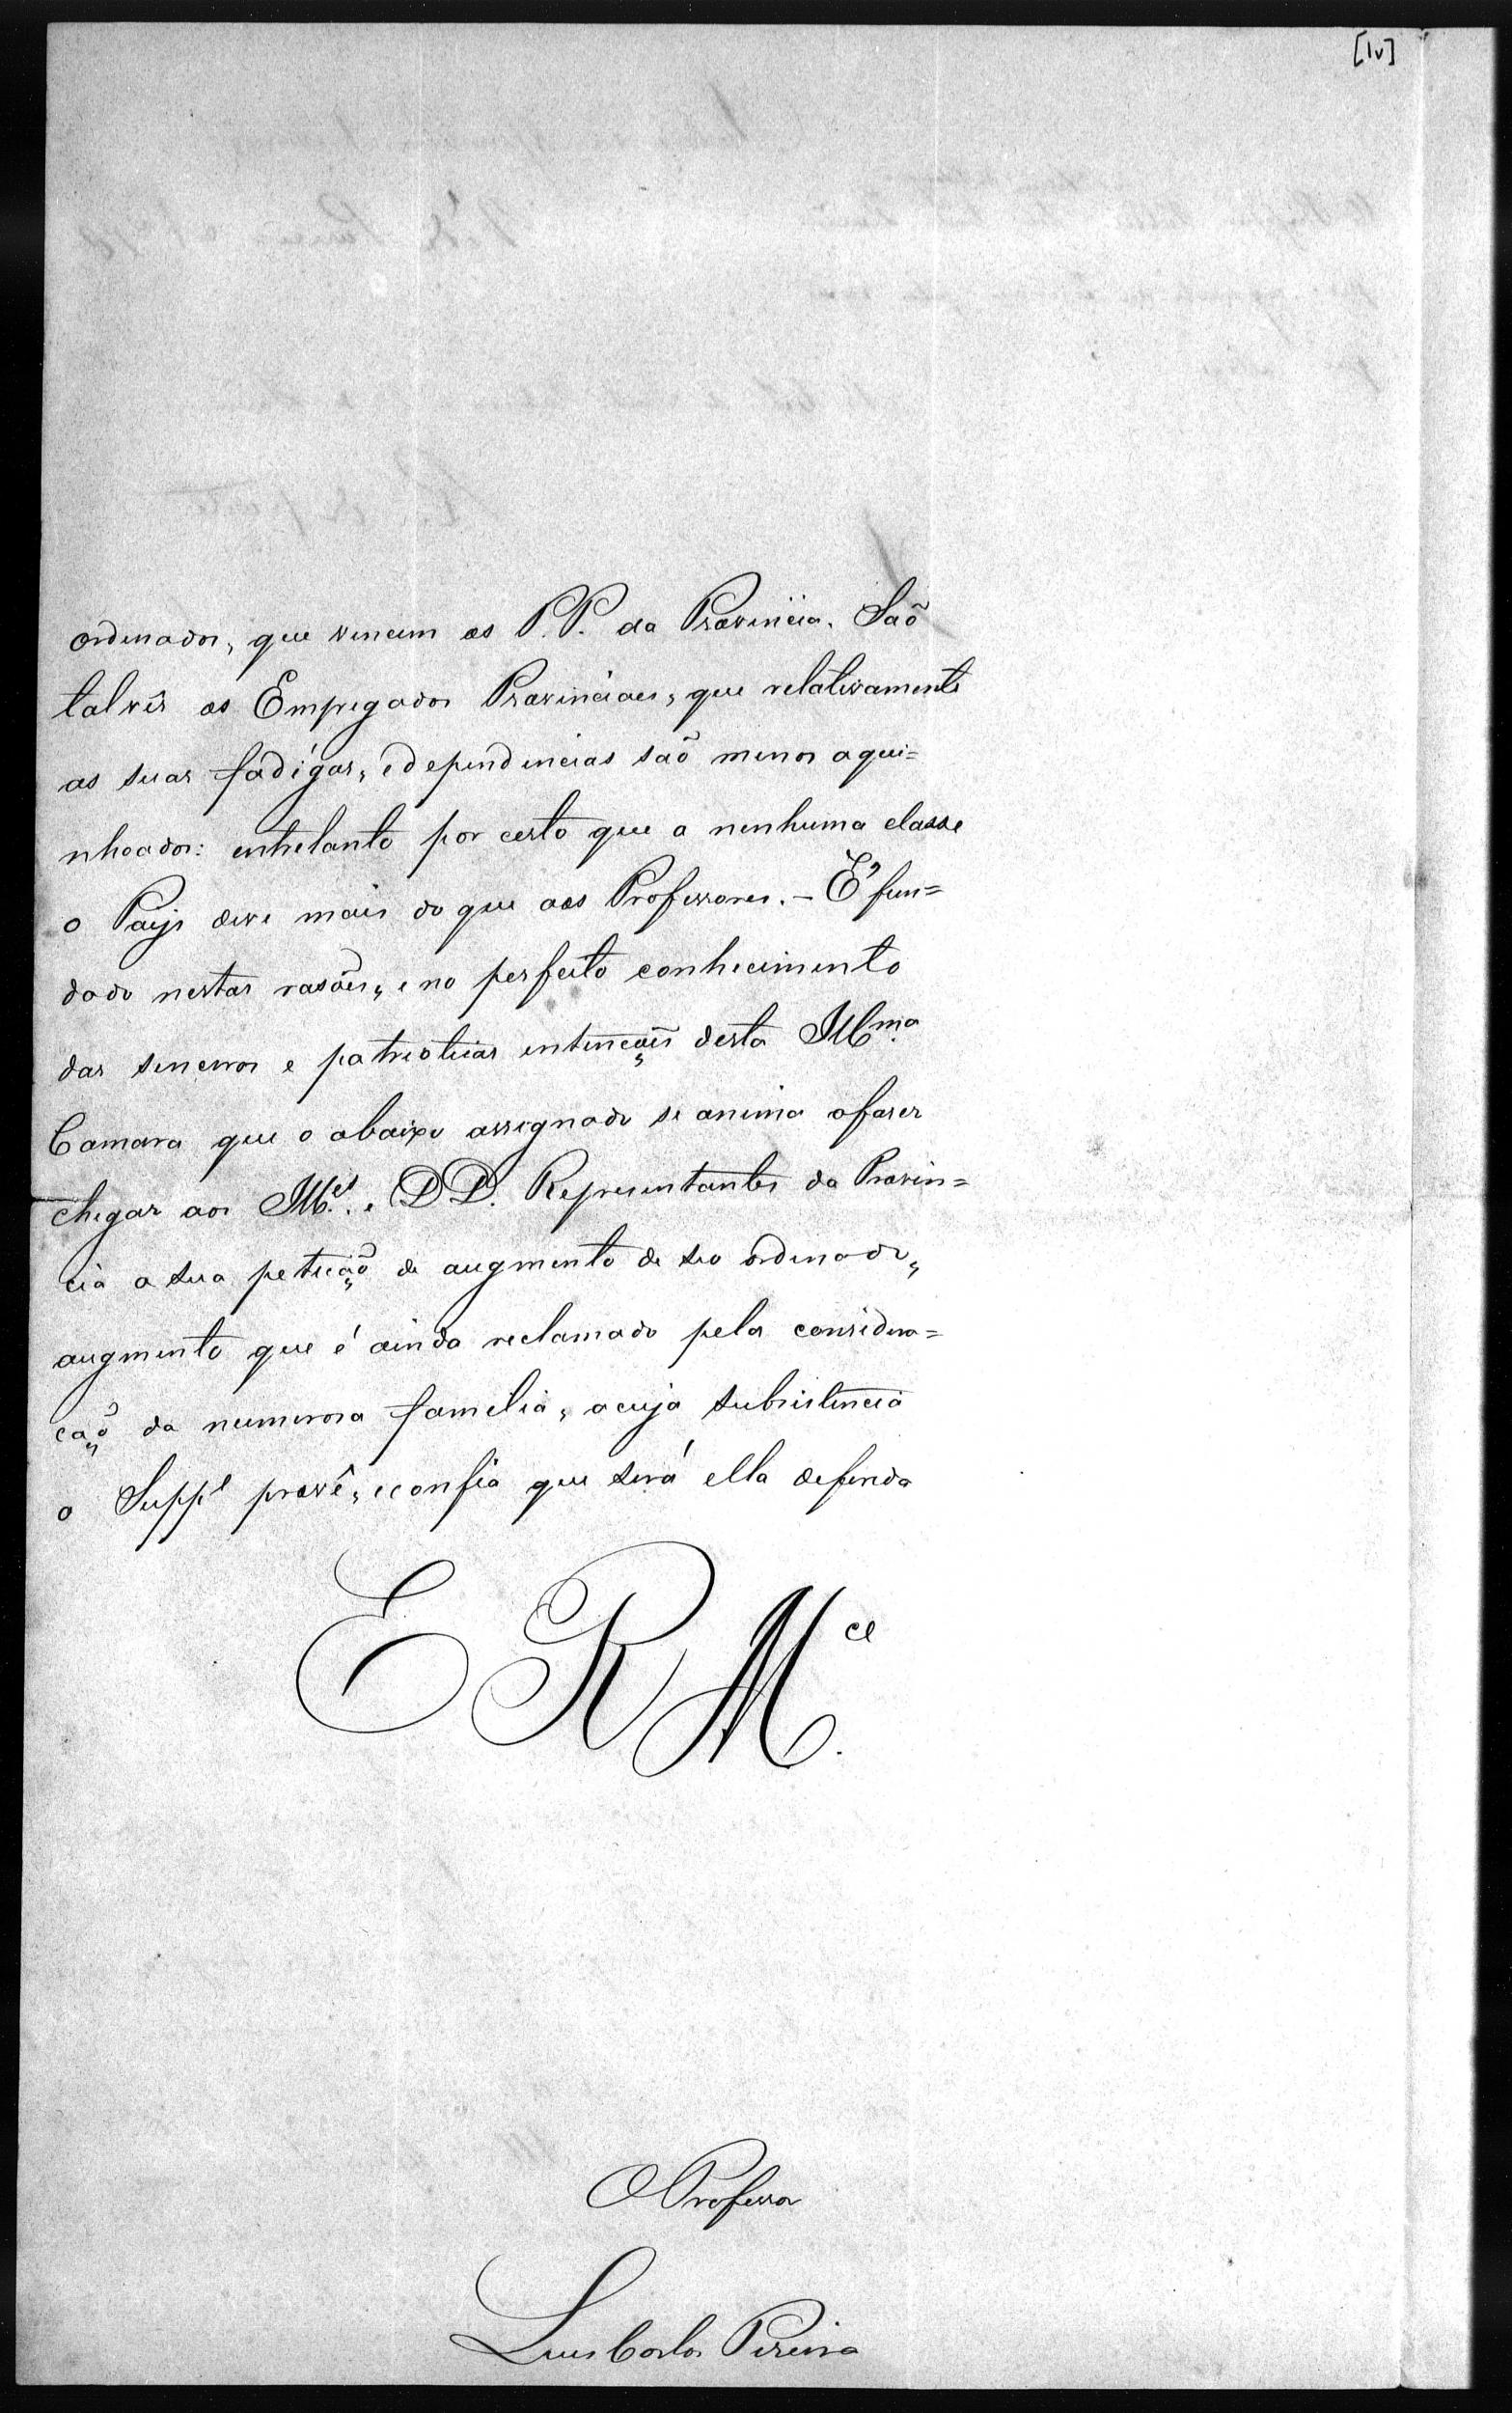 [1v]
ordenados, que vencem os P.P. da Provincia. Saõ
talvês os Empregados Provinciaes, que relativamente
as suas fadígas, e dependencias saõ menos aqui=
nhoados: entretanto por certo que a nenhuma classe
o Paijs deve mais do que aos Professores. - É fun=
dado nestas rasões, e no perfeito conhecimento
das sinceras e patrioticas intenções desta Illma.
Camara que o abaixo assignado se anima afaser
chegar aos Illes. e DD. Representantes da Provin=
cia a sua petiçaõ de augmento de seo ordenado,
augmento que é ainda reclamado pela considera=
çaõ da numerosa familia, acuja subsistencia
o Suppe provê, econfia que será ella deferida
E R Mce.
O Professor
Luis Carlos Pereira